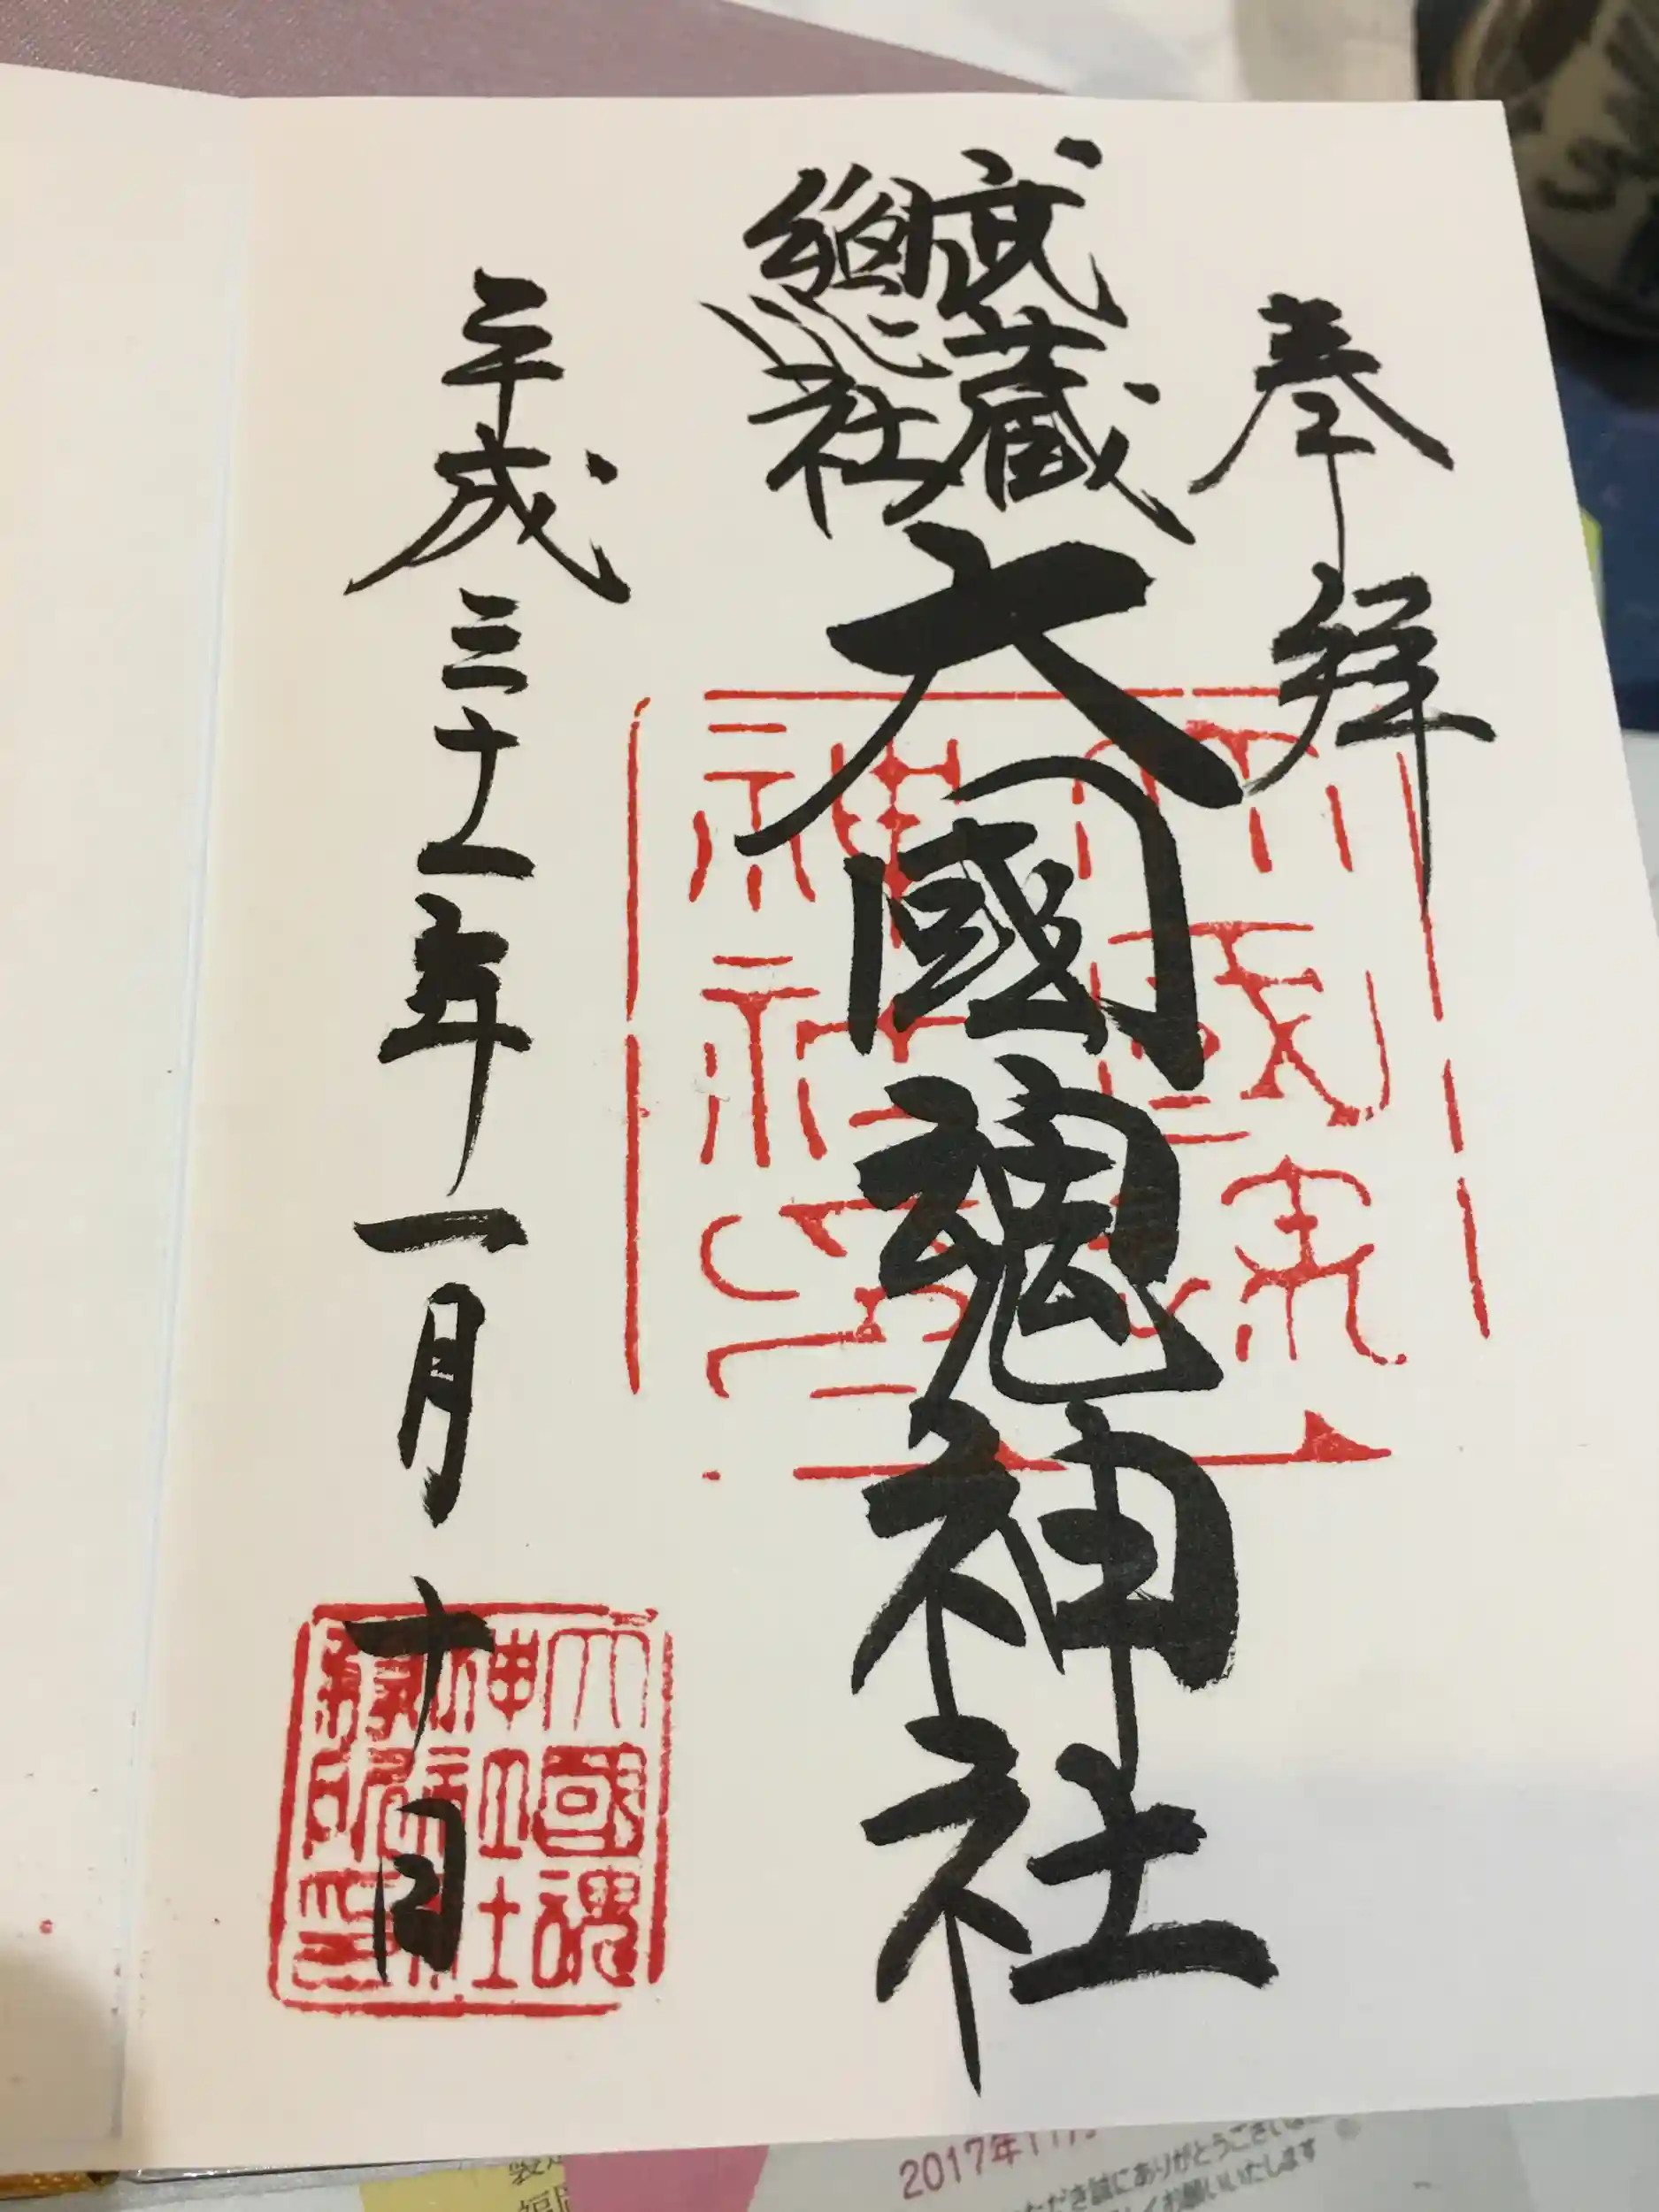 奉拝
武蔵
總社
大國魂神社
平成三十一年一月十日
大國魂
神社
印
2017年11月
ただき誠にありがとうござい
お願いいたします